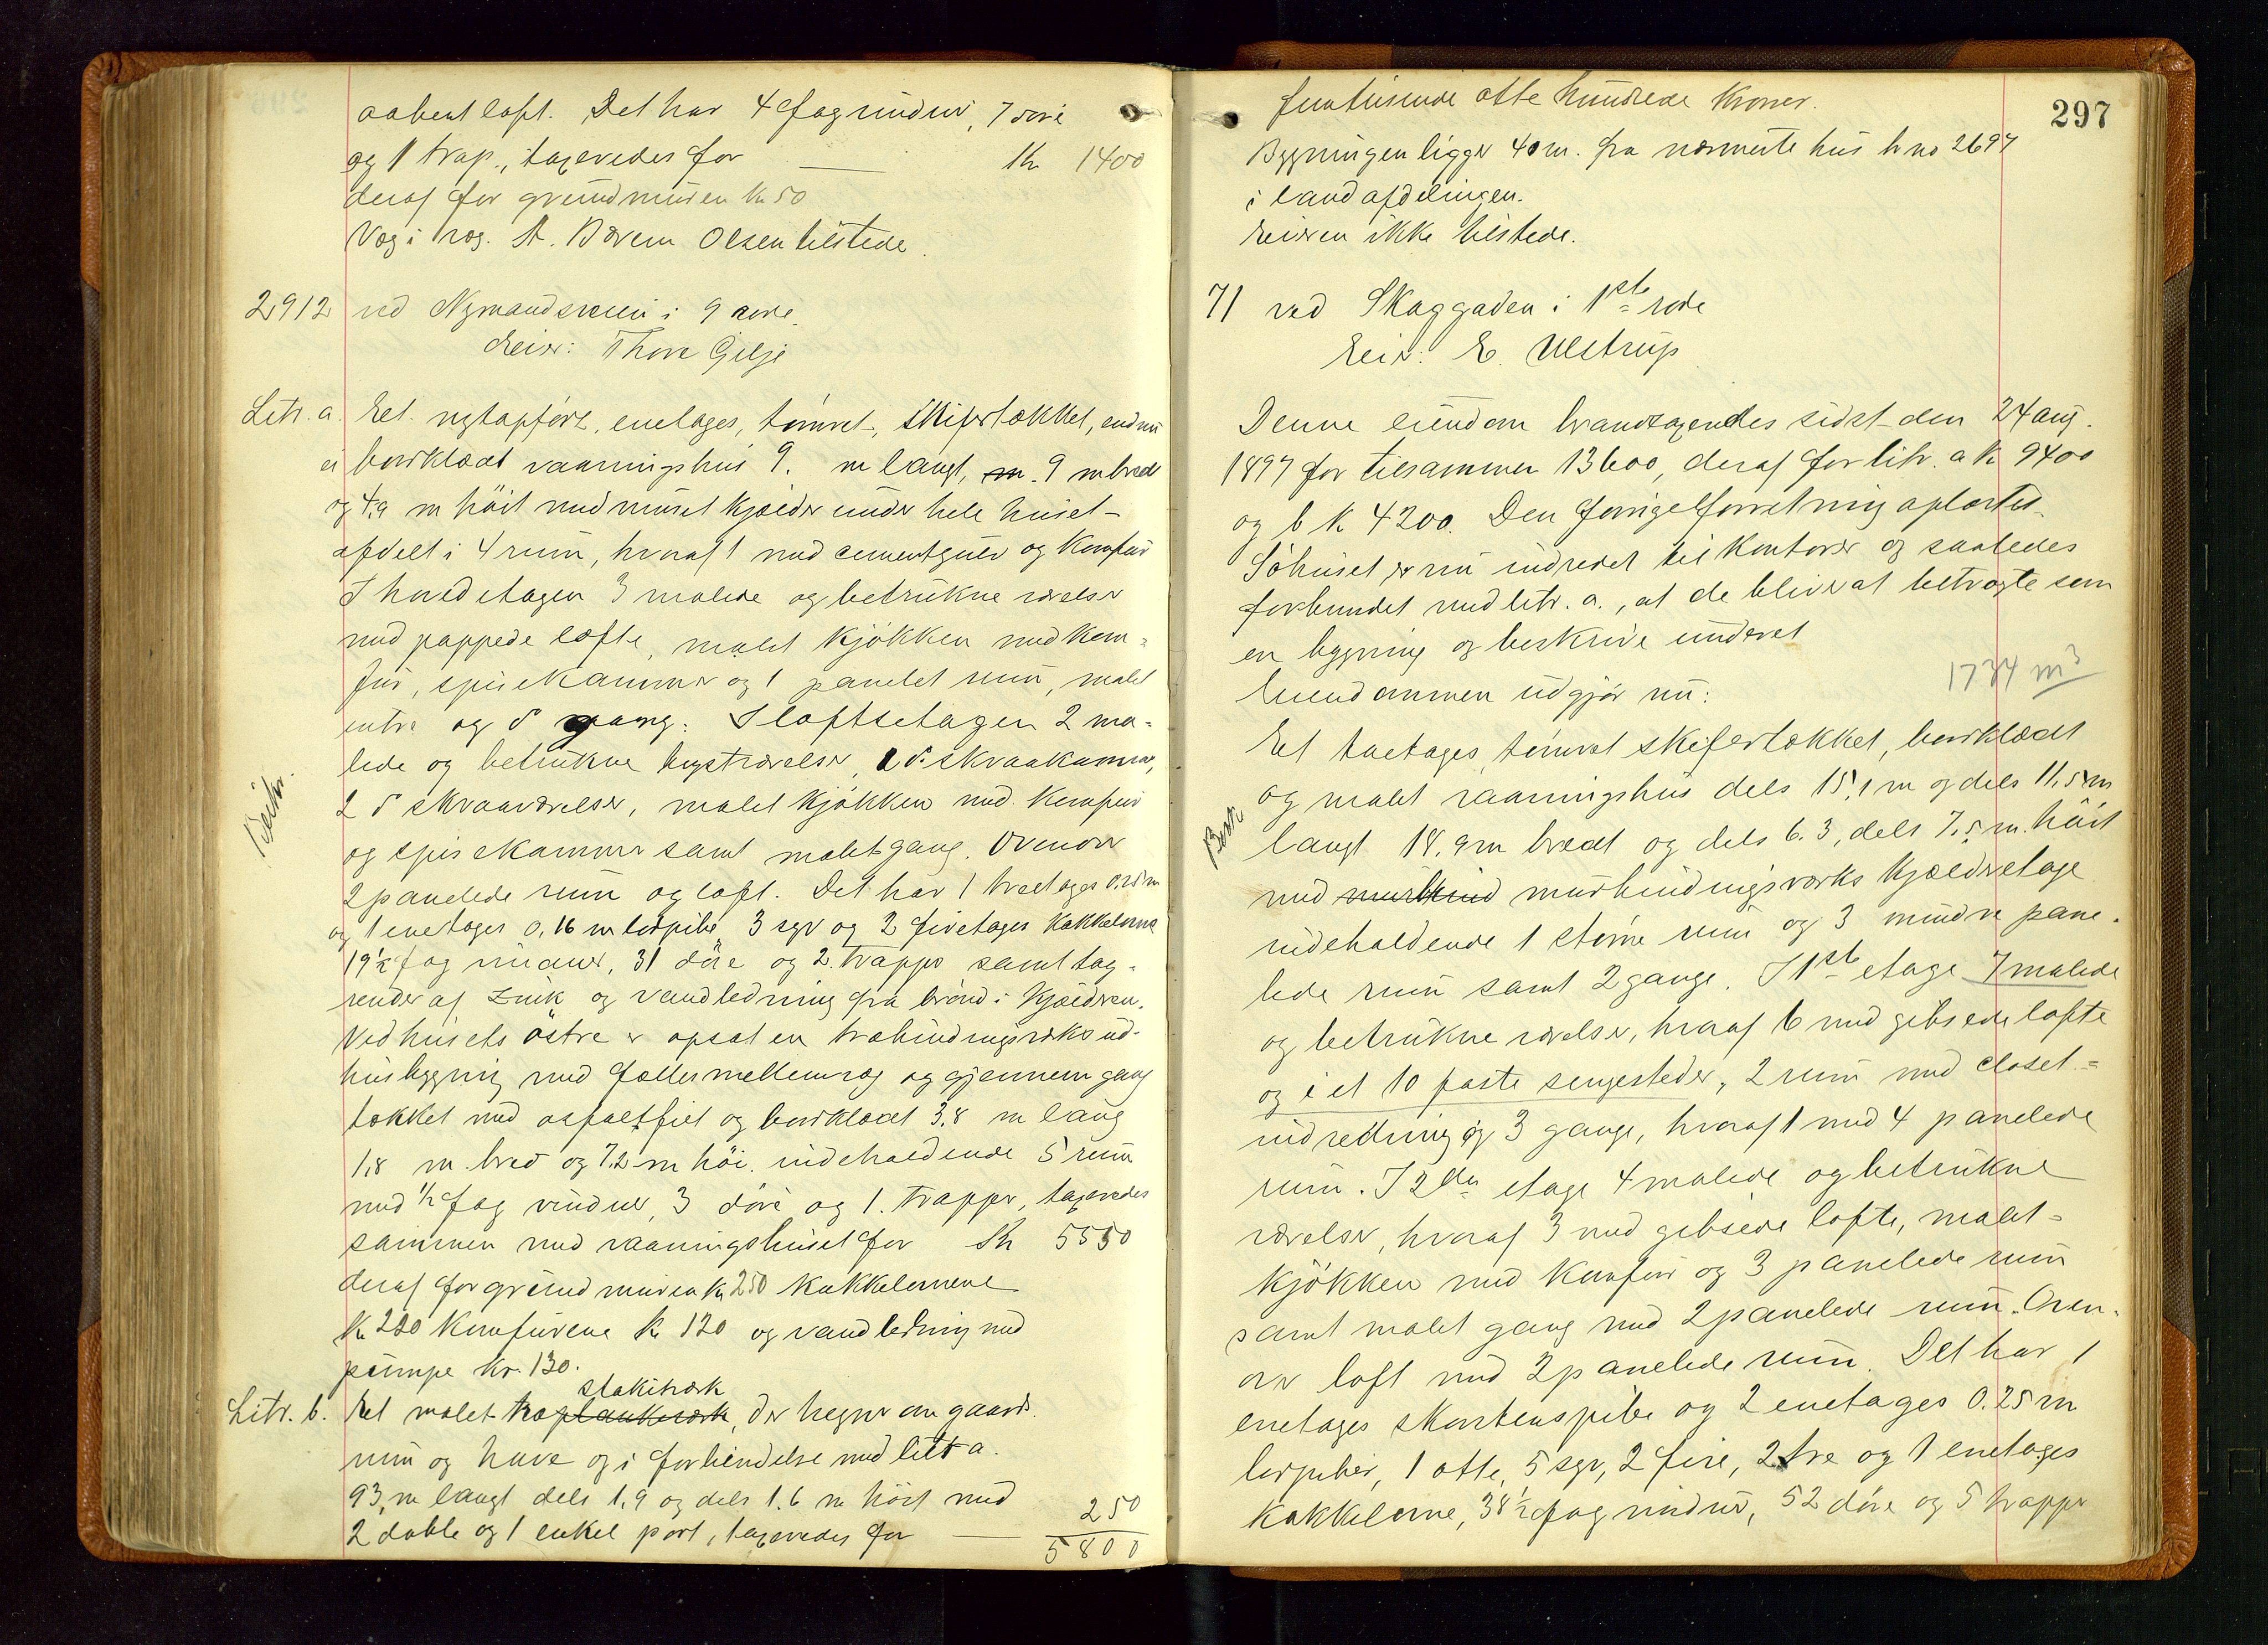 aabent loft. Det har 4 fag vinduer, 7 döre
og 1 trap., taxeredes for — Kr 1400
deraf for grundmuren Kr 50
Nog i reg. A. Olsen tilstede.
2912 ved Nymandsveien i 9 rode.
Eier: Thore Gilje
Litr. a. Et nytopfört, enetages, tömret, skifertækket, endnu
ei bordklædt vaaningshus 9. m langt, 9 m bredt
og 4.9 m höit med muret kjælder under hele huset
afdelt i 4 rum, hvoraf 1 med cementgulv og komfur
I hovedetagen 3 malede og betrukne værelser
med pappede lofte, malet kjökken med kom=
fur, spisekammer og 1 panelet rum, malet
entre og d° gang. I loftsetagen 2 ma=
lede og betrukne kvistværelser, 1 d° skraakammer,
2 d° skraaværelser, malet kjökken med komfur
og spisekammer samt malet gang. Ovenover
2 panelede rum og loft. Det har 1 treetages 0.25 m
og 1 enetages 0.16 m lerpibe, 3 syv og 2 fireetages kakkelovne
19½ fag vinduer, 31 döre og 2 trapper samt tag=
render af zink og vandledning fra brönd i kjælderen.
Ved husets östre er opsat en træbindingsværks ud=
husbygning med fælles mellemvæg og gjennemgang
tækket med asfaltfilt og bordklædt 3.8 m lang
1.8 m bred og 7.2 m höi. indeholdende 5 rum
med ½ fag vinduer, 3 döre og 1. trapper, taxeredes
sammen med vaaningshuset for Kr 5550
deraf for grundmuren Kr 250 kakkelovnene
Kr 220 komfurene Kr 120 og vandledning med
pumpe Kr. 130.
stakitværk
Litr. b. Et malet træplankeværk, der hegner om gaards
rum og have og i forbindelse med litr a.
93 m langt dels 1.9 og dels 1.6 m höit med
2 doble og 1 enkel port, taxeredes for — 250
5800
297
femtusende otte hundrede Kroner.
Bygningen ligger 40 m. fra nærmeste hus h no 2697
i landafdelingen.
Eieren ikke tilstede.
71 ved Skaggaden i 1ste rode
Eier: E. Ulstrup
Denne eiendom brandtaxeredes sidst den 24 aug.
1897 for tilsammen 13600, deraf for litr. a K 9400
og b K 4200. Den forrige forretning oplæstes.
Söhuset er nu indredet til kontorer og saaledes
forbundet med litr. a., at de bliver at betragte som
en bygning og beskrive underet
Eiendommen udgjör nu:
1734 m³
Et toetages, tömret skifertækket, bordklædt
og malet vaaningshus dels 15.1 m og dels 11.5 m
Besk langt 18.9 m bredt og dels 6.3, dels 7.5 m. höit
med murbind murbindingsværks kjælderetage
indeholdende 1 större rum og 3 mindre pane=
lede rum samt 2 gange. I 1ste etage 7 malede
og betrukne værelser, hvoraf 6 med gibsede lofte
og i et 10 faste sengesteder, 2 rum med closet=
indredning og 3 gange, hvoraf 1 med 4 panelede
rum. I 2den etage 4 malede og betrukne
værelser, hvoraf 3 med gibsede lofte, malet
kjökken med komfur og 3 panelede rum
samt malet gang med 2 panelede rum. Oven=
over loft med 2 panelede rum. Det har 1
enetages skorstenspibe og 2 enetages 0.25 m
lerpiber, 1 otte, 5 syv, 2 fire, 2 tre og 1 enetages
kakkelovne, 38½ fag vinduer, 52 döre og 5 trapper